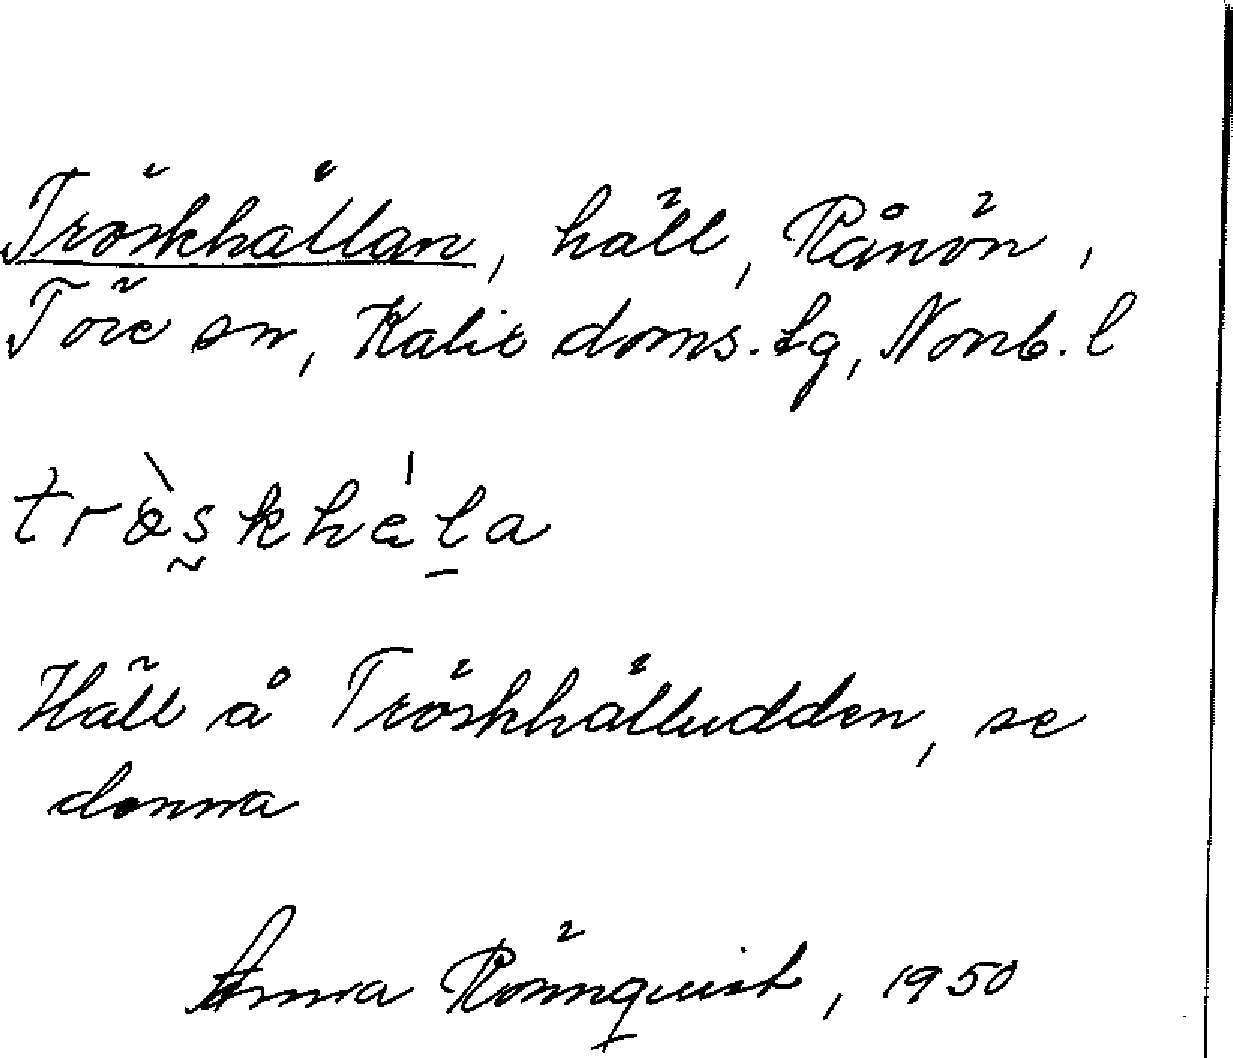 Tröskhällan, häll, Rånön,
Töre sn, Kalix doms.lg, Norrb. l
Häll å Tröskhälludden, se
denna
Anna Rönnquist, 1950